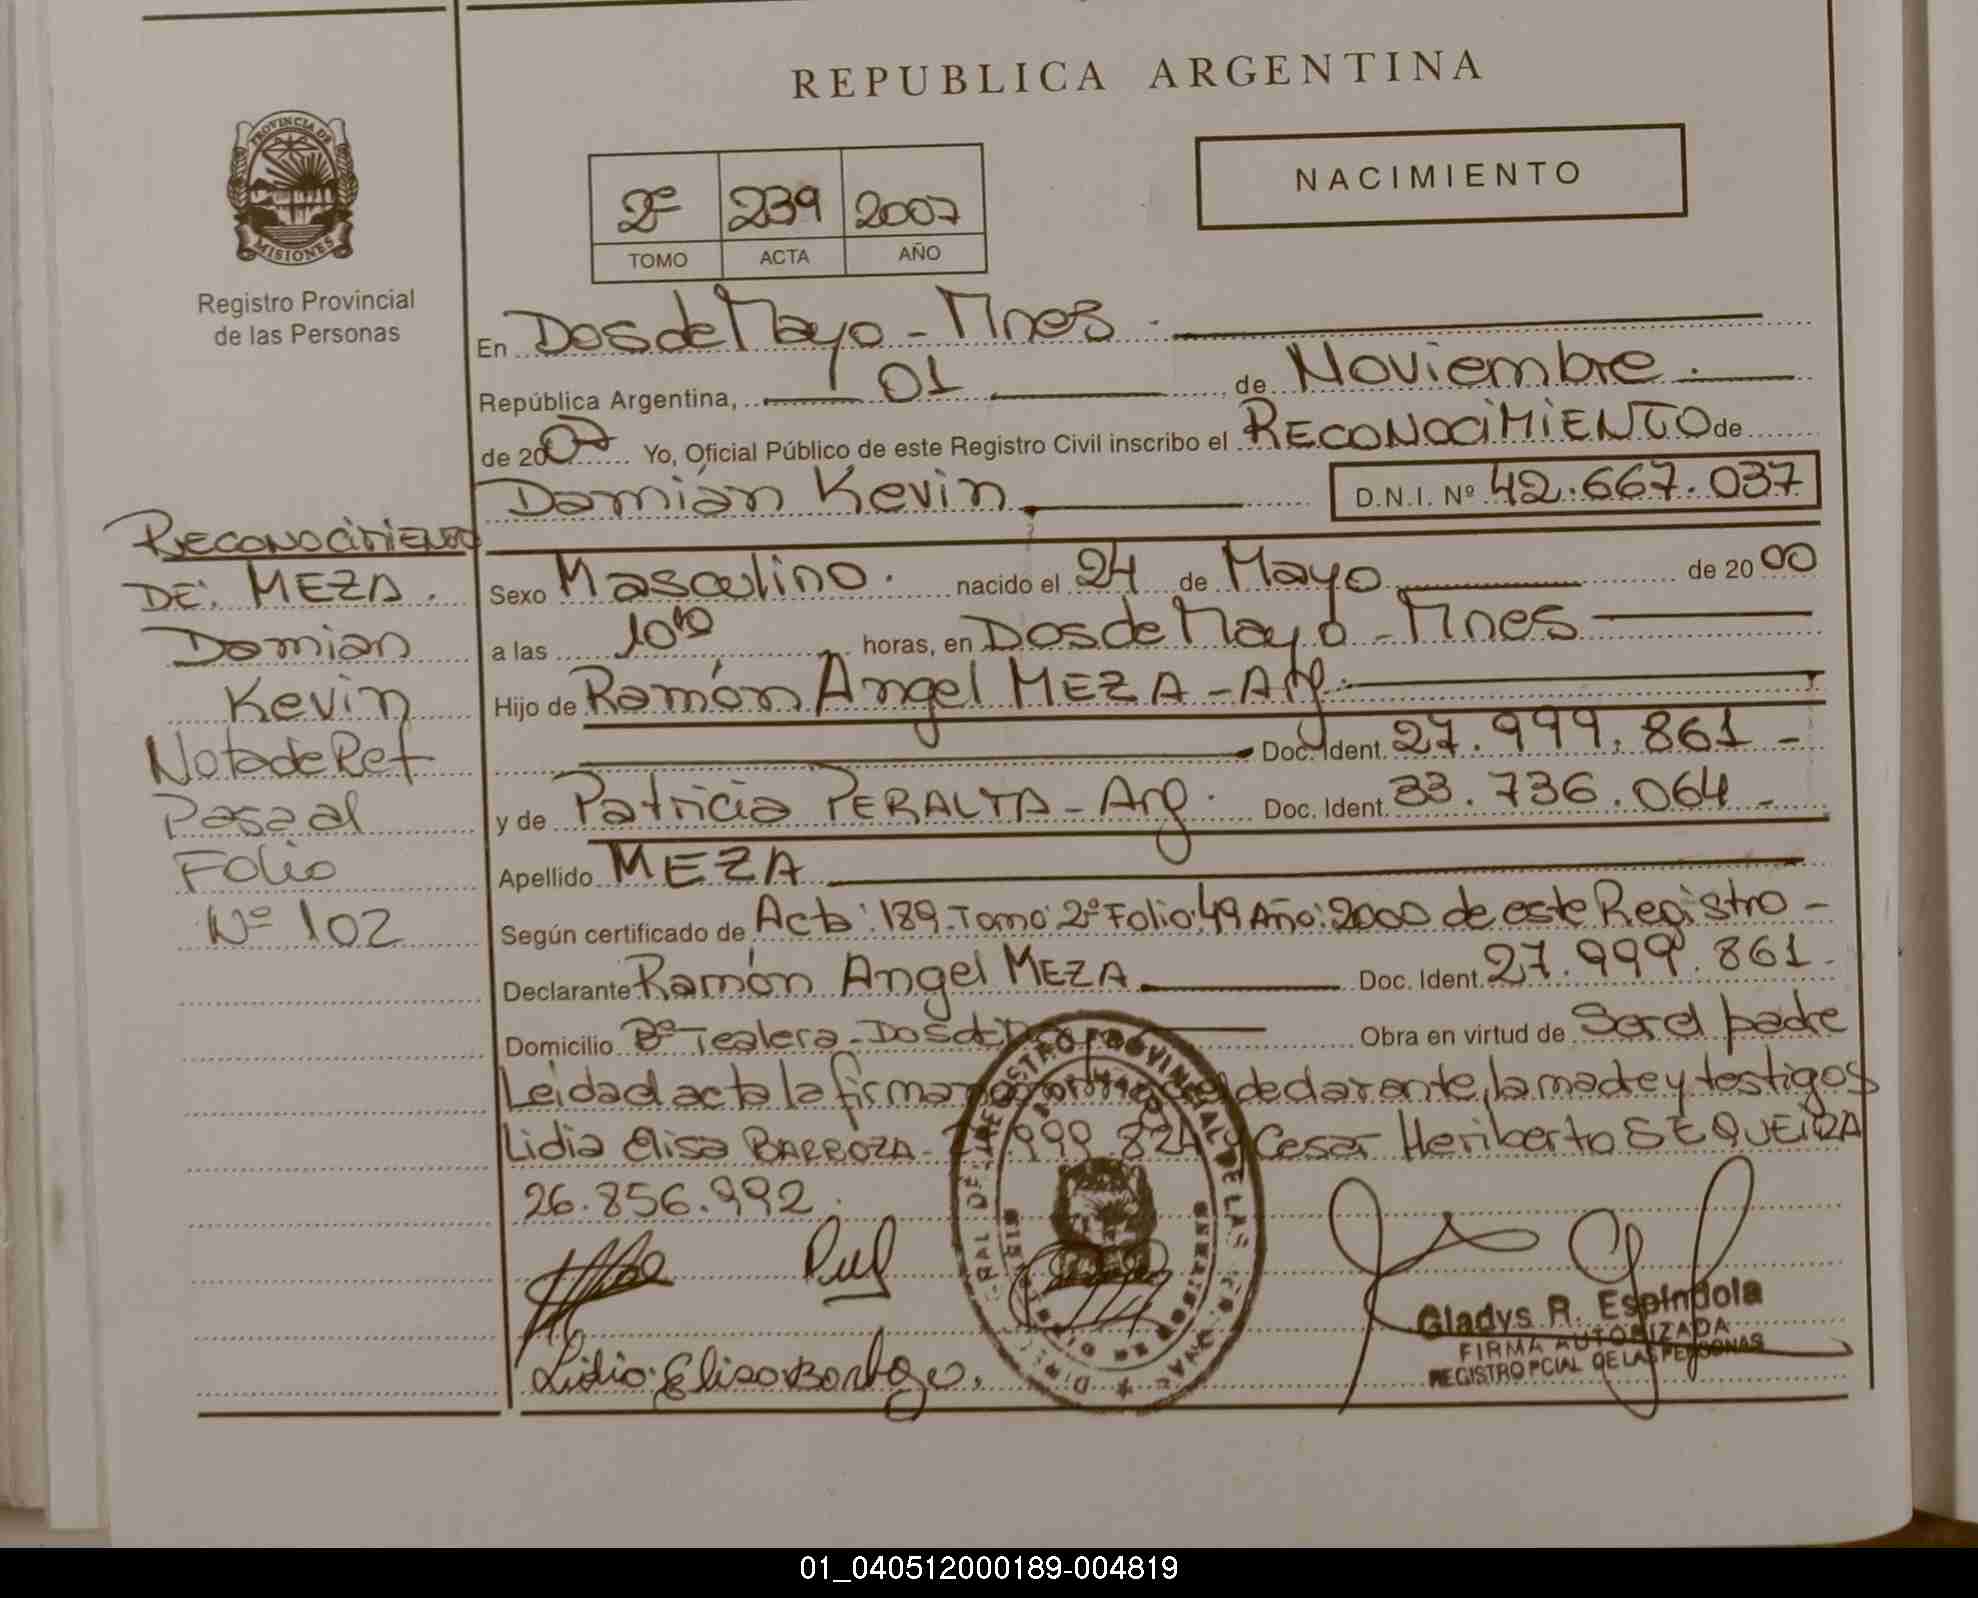 REPUBLICA ARGENTINA
PROVINCIA DE
MISIONES
Registro Provincial
de las Personas
2º 239 2007
TOMO ACTA AÑO
NACIMIENTO
En Dos de Mayo - Mnes
República Argentina, 01 de Noviembre.
de 2007 Yo, Oficial Público de este Registro Civil inscribo el RECONOCIMIENTO de
Damián Kevin D.N.I. Nº 42.667.037
Sexo Masculino. nacido el 24 de Mayo de 2000
a las 10¹⁰ horas, en Dos de Mayo - Mnes
Hijo de Ramón Angel MEZA - Arg.
Doc. Ident. 27.999.861 -
y de Patricia PERALTA - Arg. Doc. Ident. 33.736.064 -
Apellido MEZA
Según certificado de Acta: 189. Tomo: 2º Folio: 49 Año: 2000 de este Registro -
Declarante Ramón Angel MEZA Doc. Ident. 27.999.861 -
Domicilio Bº Tealera - Dos de Obra en virtud de Ser el padre
Leida el acta la firman declarante, la madre y testigos
Lidia Elisa BARROZA - .999.824 y Cesar Heriberto SEQUEIRA
26.856.992.
RECONOCIMIENTO
DE: MEZA.
Damian
Kevin
Nota de Ref
Pasa al
Folio
Nº 102
Gladys R. Espindola
FIRMA AUTORIZADA
REGISTRO PCIAL DE LAS PERSONAS
01_040512000189-004819